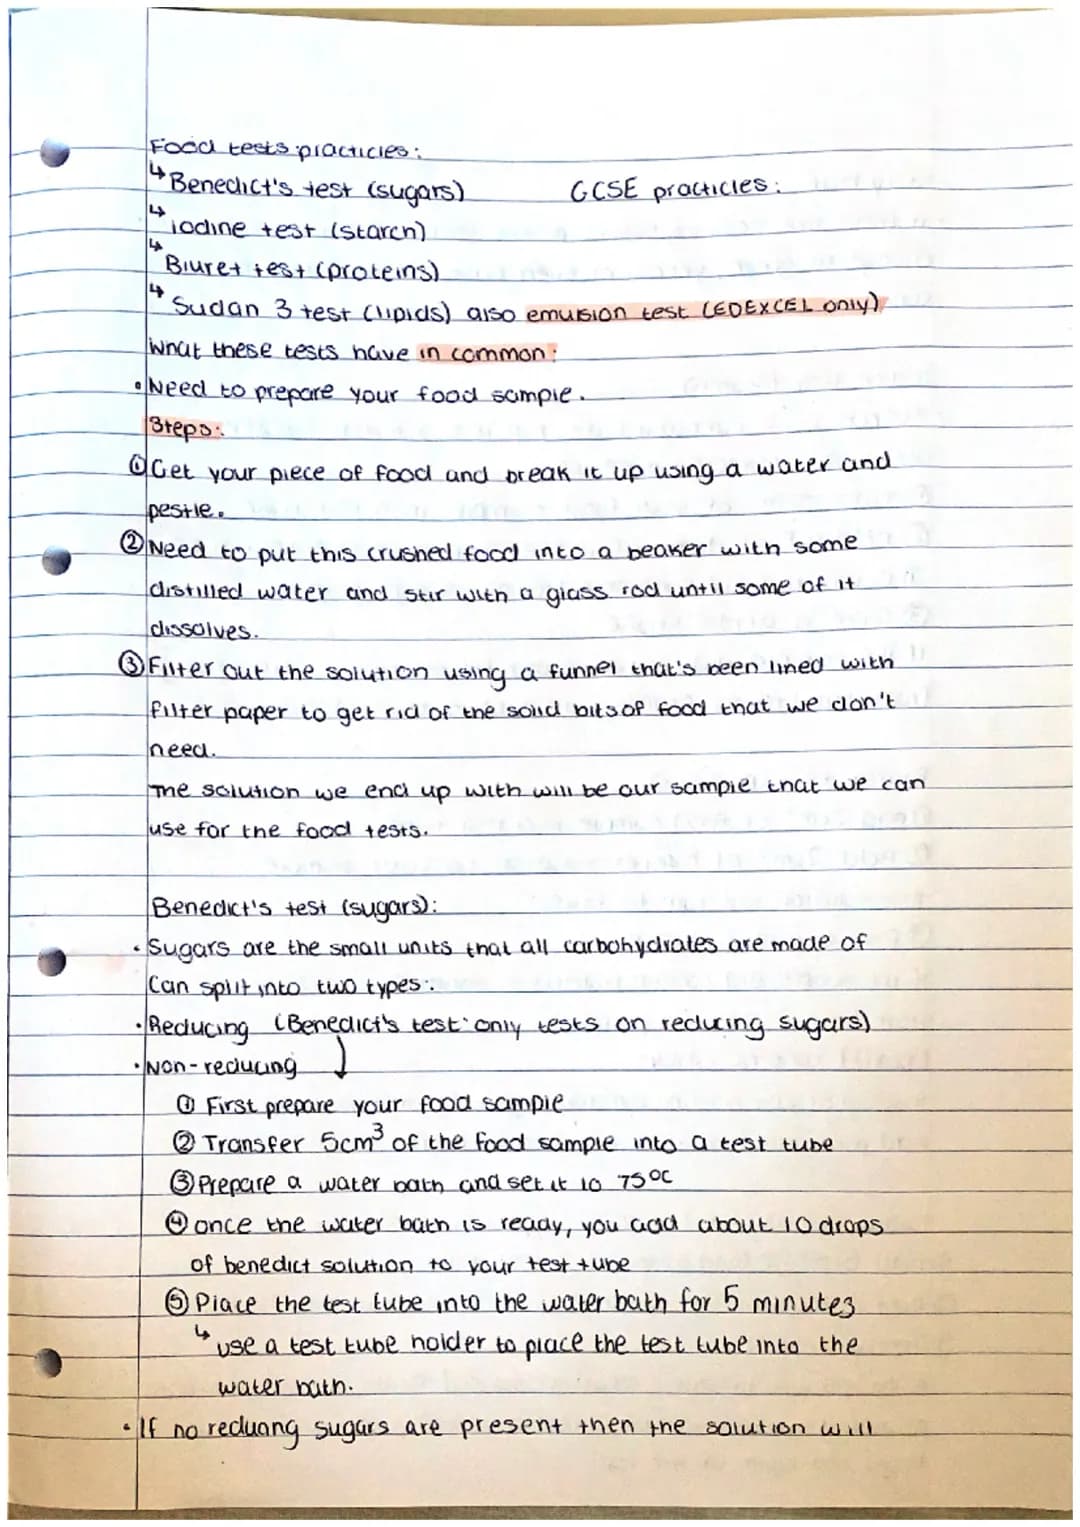 Food tests practicles:
↳ Benedict's test (sugars)
GCSE practicles:
↳ iodine test (starch)
↳ Biuret test (proteins)
↳ Sudan 3 test (lipids) also emulsion test (EDEXCEL only)
What these tests have in common:
• Need to prepare your food sample.
Steps:
① Get your piece of food and break it up using a water and
pestle.
② Need to put this crushed food into a beaker with some
distilled water and stir with a glass rod until some of it
dissolves.
③ Filter out the solution using a funnel that's been lined with
filter paper to get rid of the solid bits of food that we don't
need.
The solution we end up with will be our sample that we can
use for the food tests.
Benedict's test (sugars):
• Sugars are the small units that all carbohydrates are made of
Can split into two types:
• Reducing (Benedict's test only tests on reducing sugars)
• Non-reducing
① First prepare your food sample
② Transfer 5cm³ of the food sample into a test tube
③ Prepare a water bath and set it to 75°C
④ once the water bath is ready, you add about 10 drops
of benedict solution to your test tube
⑤ Place the test tube into the water bath for 5 minutes
↳ use a test tube holder to place the test tube into the
water bath.
• If no reducing sugars are present then the solution will